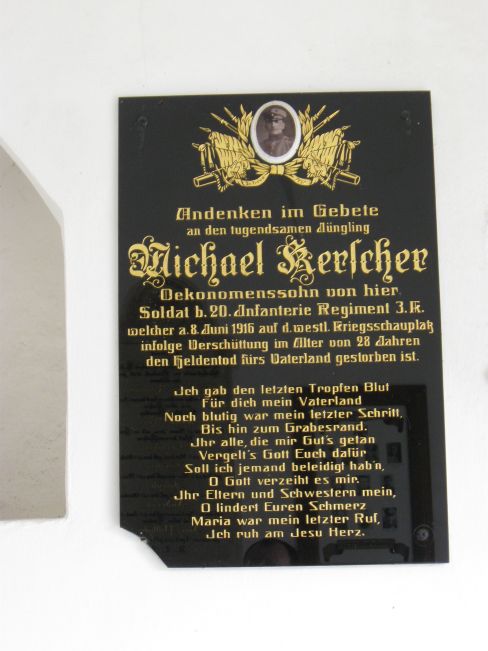 Andenken im Gebete
an den tugendsamen Jüngling
Michael Kerscher
Oekonomenssohn von hier.
Soldat b. 20. Infanterie Regiment 3. K.
welcher a. 8. Juni 1916 auf d. westl. Kriegsschauplatz
infolge Verschüttung im Alter von 28 Jahren
den Heldentod fürs Vaterland gestorben ist.
Ich gab den letzten Tropfen Blut
Für dich mein Vaterland
Noch blutig war mein letzter Schritt,
Bis hin zum Grabesrand.
Ihr alle, die mir Gut's getan
Vergelt's Gott Euch dafür
Soll ich jemand beleidigt hab'n,
O Gott verzeiht es mir.
Ihr Eltern und Schwestern mein,
O lindert Euren Schmerz
Maria war mein letzter Ruf,
Ich ruh am Jesu Herz.